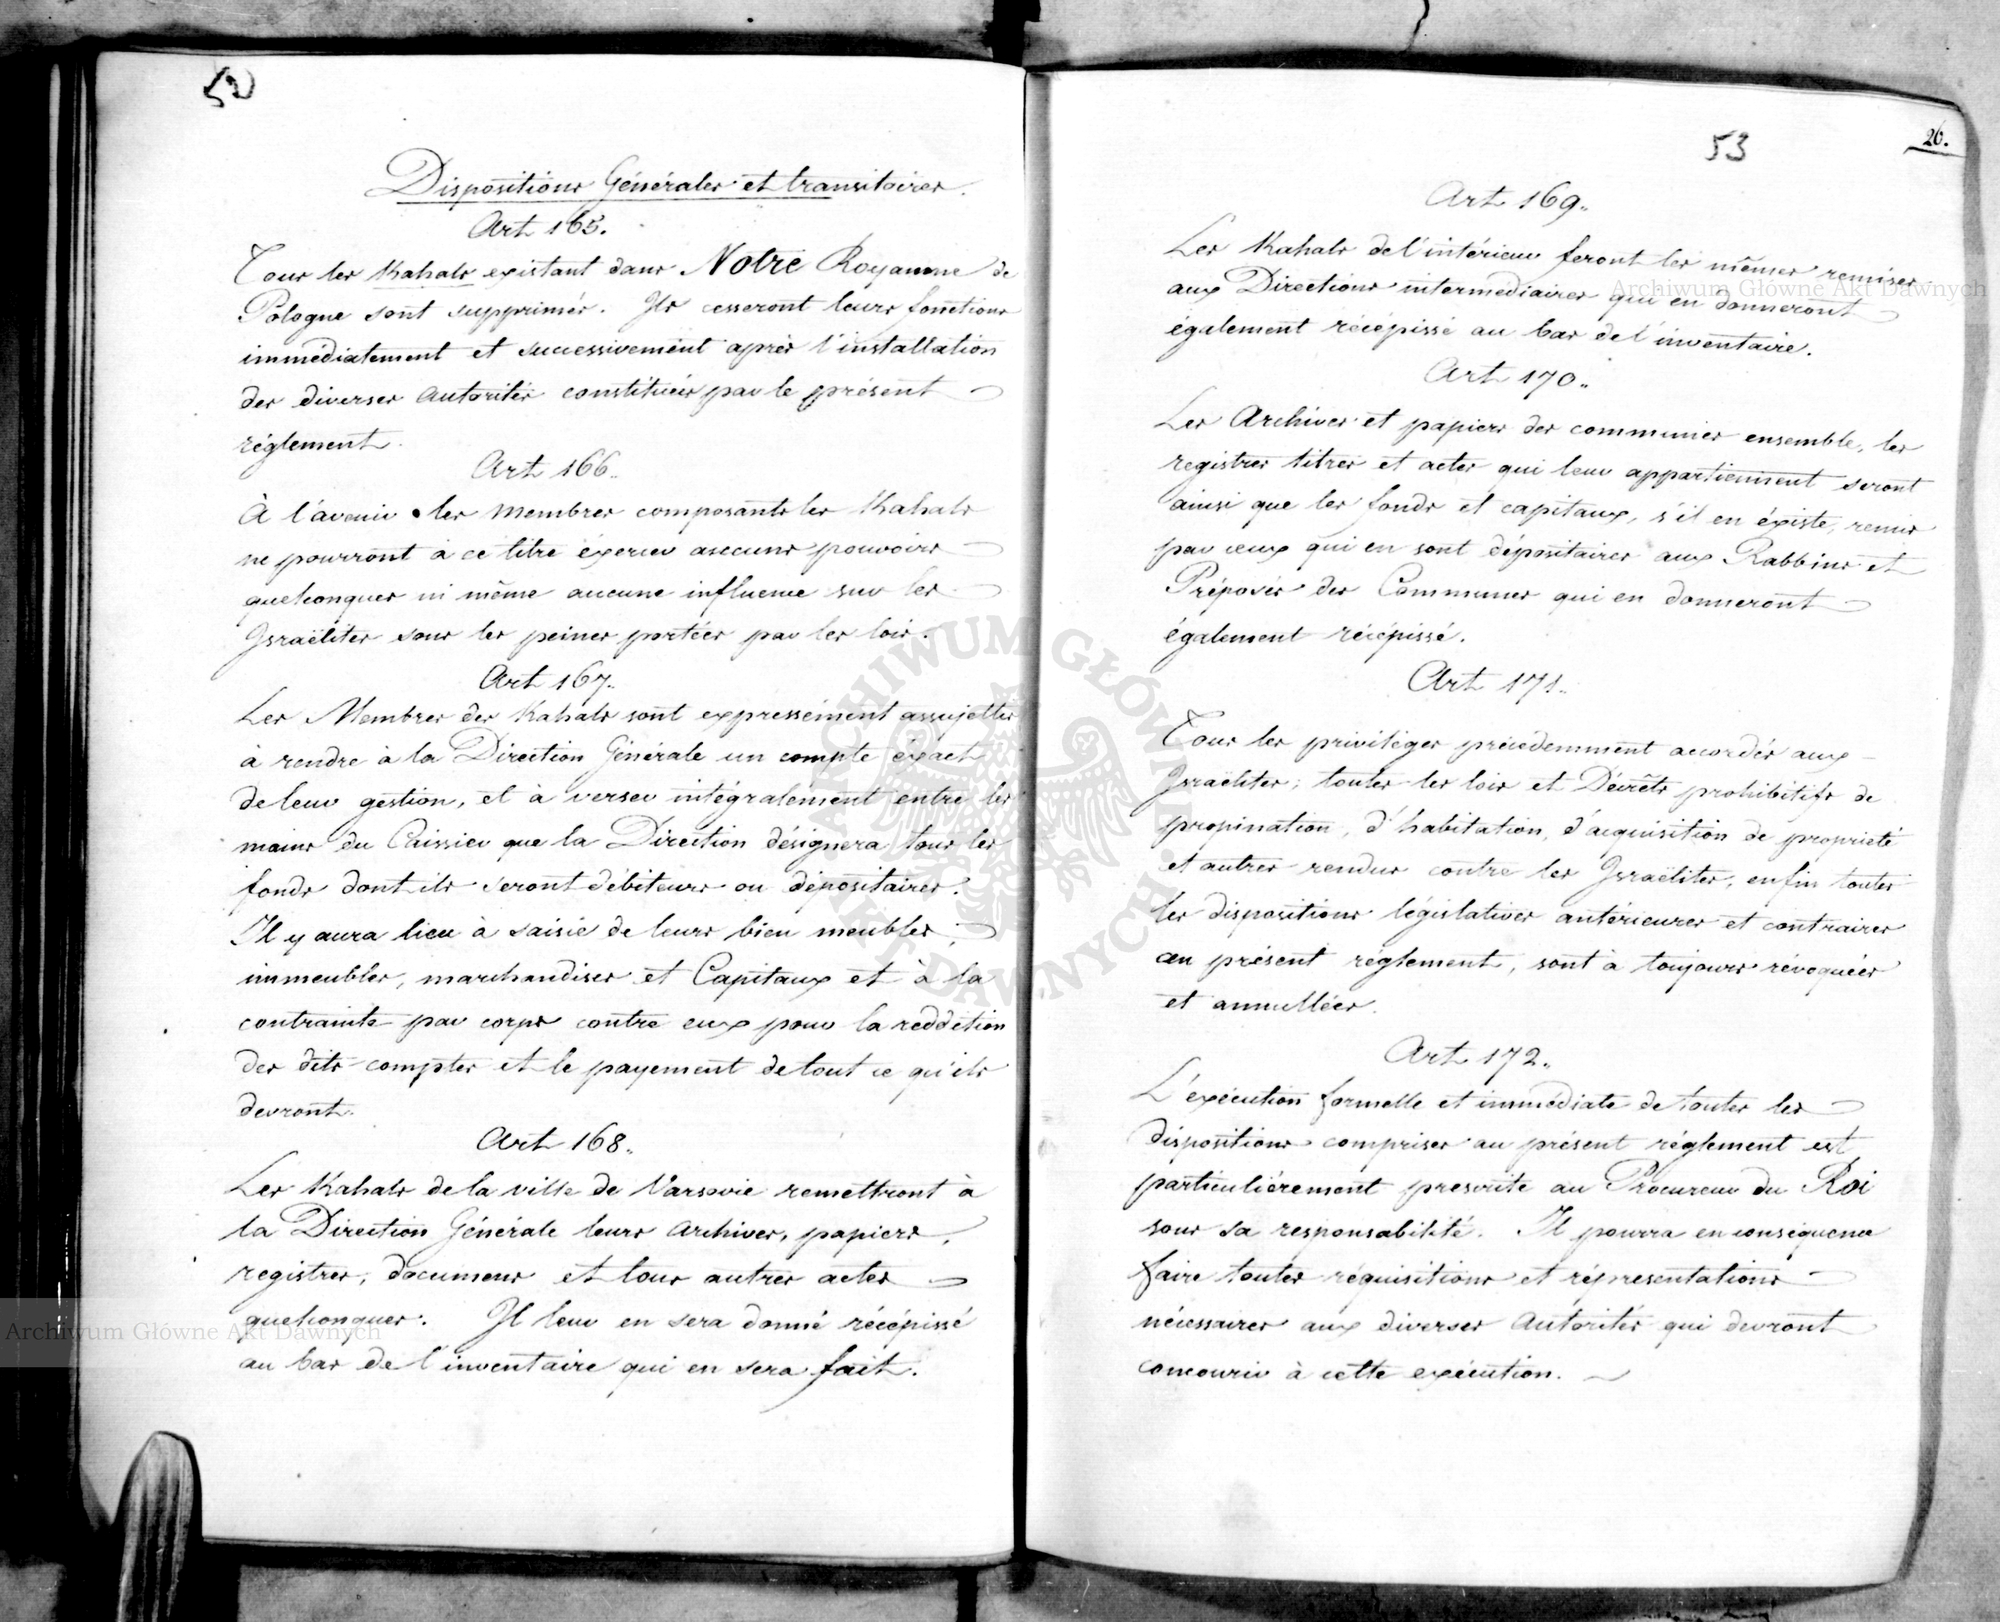 52
Dispositions Générales et transitoires.
Art 165.
Tous les Kahals existant dans Notre Royaume de
Pologne sont supprimés. Ils cesseront leurs fonctions
immédiatement et successivement après l'installation
des diverses autorités constituées par le présent
réglement.
Art 166.
À l'avenir les membres composants les Kahals
ne pourront à ce titre éxercer aucuns pouvoirs
quelconques ni même aucune influence sur les
Israëlites sous les peines portées par les lois.
Art 167.
Les Membres des Kahals sont expressément assujettis
à rendre à la Direction Générale un compte éxact
de leur gestion, et à verser intégralement entre les
mains du Caissier que la Direction désignera tous les
fonds dont ils seront débiteurs ou dépositaires.
Il y aura lieu à saisie de leurs bien meubles,
immeubles, marchandises et Capitaux et à la
contrainte par corps contre eux pour la reddition
des dits comptes et le payement de tout ce qu'ils
devront.
Art 168.
Les Kahals de la ville de Varsovie remettront à
la Direction Générale leurs archives, papiers,
registres, documens et tous autres actes
quelconques. Il leur en sera donné récépissé
au bas de l'inventaire qui en sera fait.
53
26.
Art 169.
Les Kahals de l'intérieur feront les mêmes remises
aux Directions intermédiaires qui en donneront
également récépissé au bas de l'inventaire.
Art 170.
Les Archives et papiers des communes ensemble, les
registres titres et actes qui leur appartiennent seront
ainsi que les fonds et capitaux, s'il en éxiste, remis
par ceux qui en sont dépositaires aux Rabbins et
Préposés des Communes qui en donneront
également récépissé.
Art 171.
Tous les privilèges précédemment accordés aux
Israëlites; toutes les lois et Décrêts prohibitifs de
propination, d'habitation, d'acquisition de propriété
et autres rendus contre les Israëlites, enfin toutes
les dispositions législatives antérieures et contraires
au présent réglement, sont à toujours révoquées
et annullées.
Art 172.
L'exécution formelle et immédiate de toutes les
dispositions comprises au présent réglement est
particuliérement prescrite au Procureur du Roi
sous sa responsabilité. Il pourra en conséquence
faire toutes réquisitions et répresentations
nécessaires aux diverses autorités qui devront
concourir à cette exécution.
Archiwum Główne Akt Dawnych
Archiwum Główne Akt Dawnych
ARCHIWUM GŁÓWNE AKT DAWNYCH